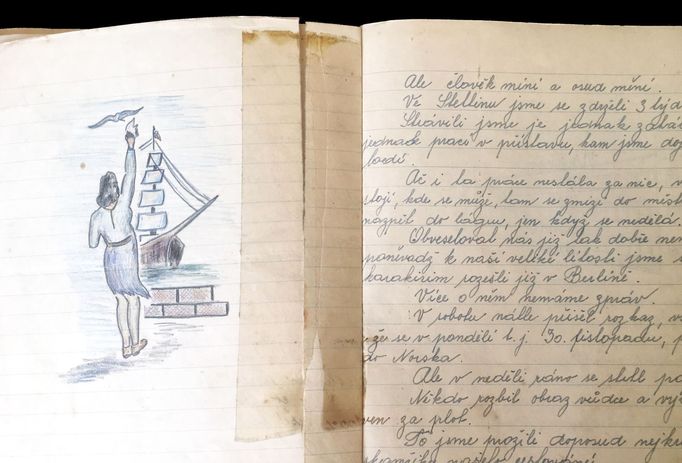 Ale člověk míní a osud mění.
Ve Stettinu jsme se zdrželi 3 týd
Strávili jsme je jednak zábav
jednak prací v přístavu, kam jsme doj
lodě.
Ač i ta práce nestála za nic,
stojí, kde se může, tam se zmizí do měst
nazpět do lágru, jen když se nedělá.
Obveseloval nás již tak dobře
poněvadž k naší veliké lítosti jsme s
karakirim rozešli již v Berlíně.
Více o něm nemáme zpráv.
V sobotu náhle přišel rozkaz,
že se v pondělí t.j. 30. listopadu,
do Norska.
Ale v neděli ráno se stalo
Někdo rozbil obraz vůdce a vy
ven za plot.
To jsme prožili doposud